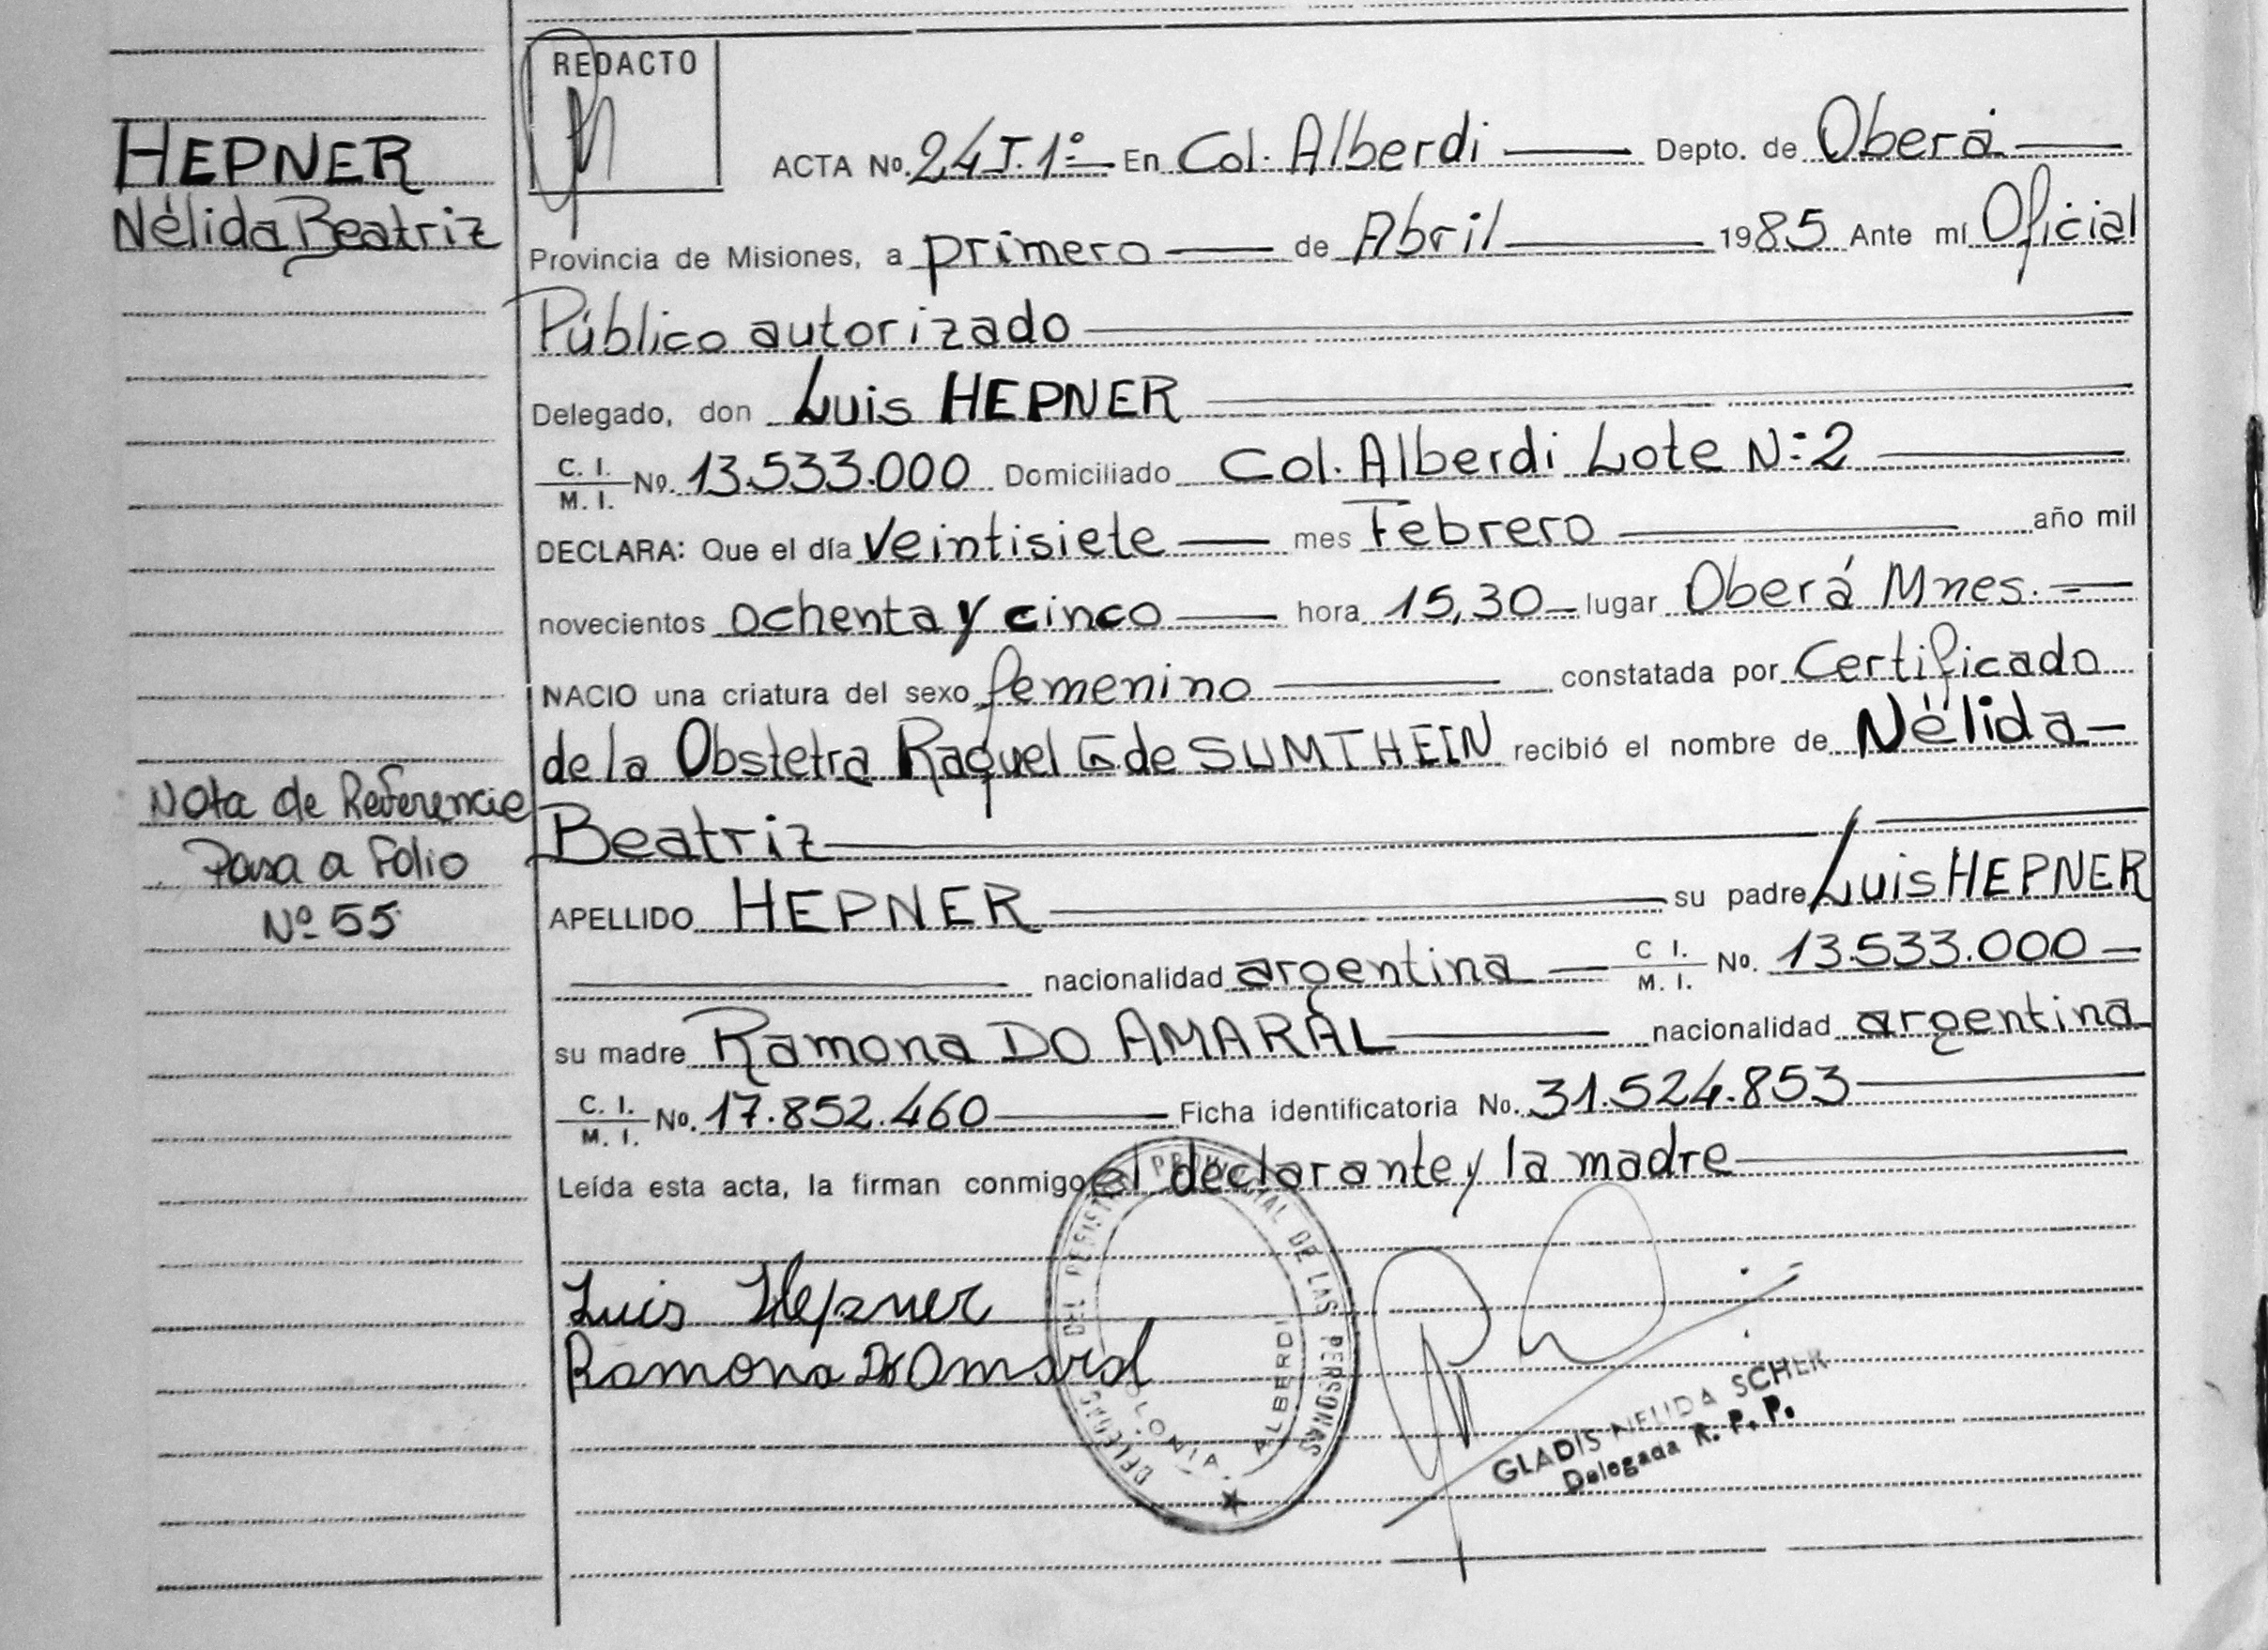 HEPNER
Nélida Beatriz
Nota de Referencia
Pasa a Folio
Nº 55
REDACTO
ACTA No. 24 T. 1º En Col. Alberdi Depto. de Oberá
Provincia de Misiones, a primero de Abril 1985 Ante mí Oficial
Público autorizado
Delegado, don Luis HEPNER
C. I. / M. I. No. 13.533.000 Domiciliado Col. Alberdi Lote Nº 2
DECLARA: Que el día veintisiete mes Febrero año mil
novecientos ochenta y cinco hora 15,30 lugar Oberá Mnes.
NACIO una criatura del sexo femenino constatada por Certificado
de la Obstetra Raquel G de SUMTHEIN recibió el nombre de Nélida
Beatriz
APELLIDO HEPNER su padre Luis HEPNER
nacionalidad argentina C I. / M. I. No. 13.533.000
su madre Ramona DO AMARAL nacionalidad argentina
C. I. / M. I. No. 17.852.460 Ficha identificatoria No. 31.524.853
Leída esta acta, la firman conmigo el declarante y la madre
Luis Hepner
Ramona Do Amaral
DEL REGISTRO PROVINCIAL DE LAS PERSONAS
COLONIA ALBERDI
GLADIS NELIDA
Delegada R. P. P.